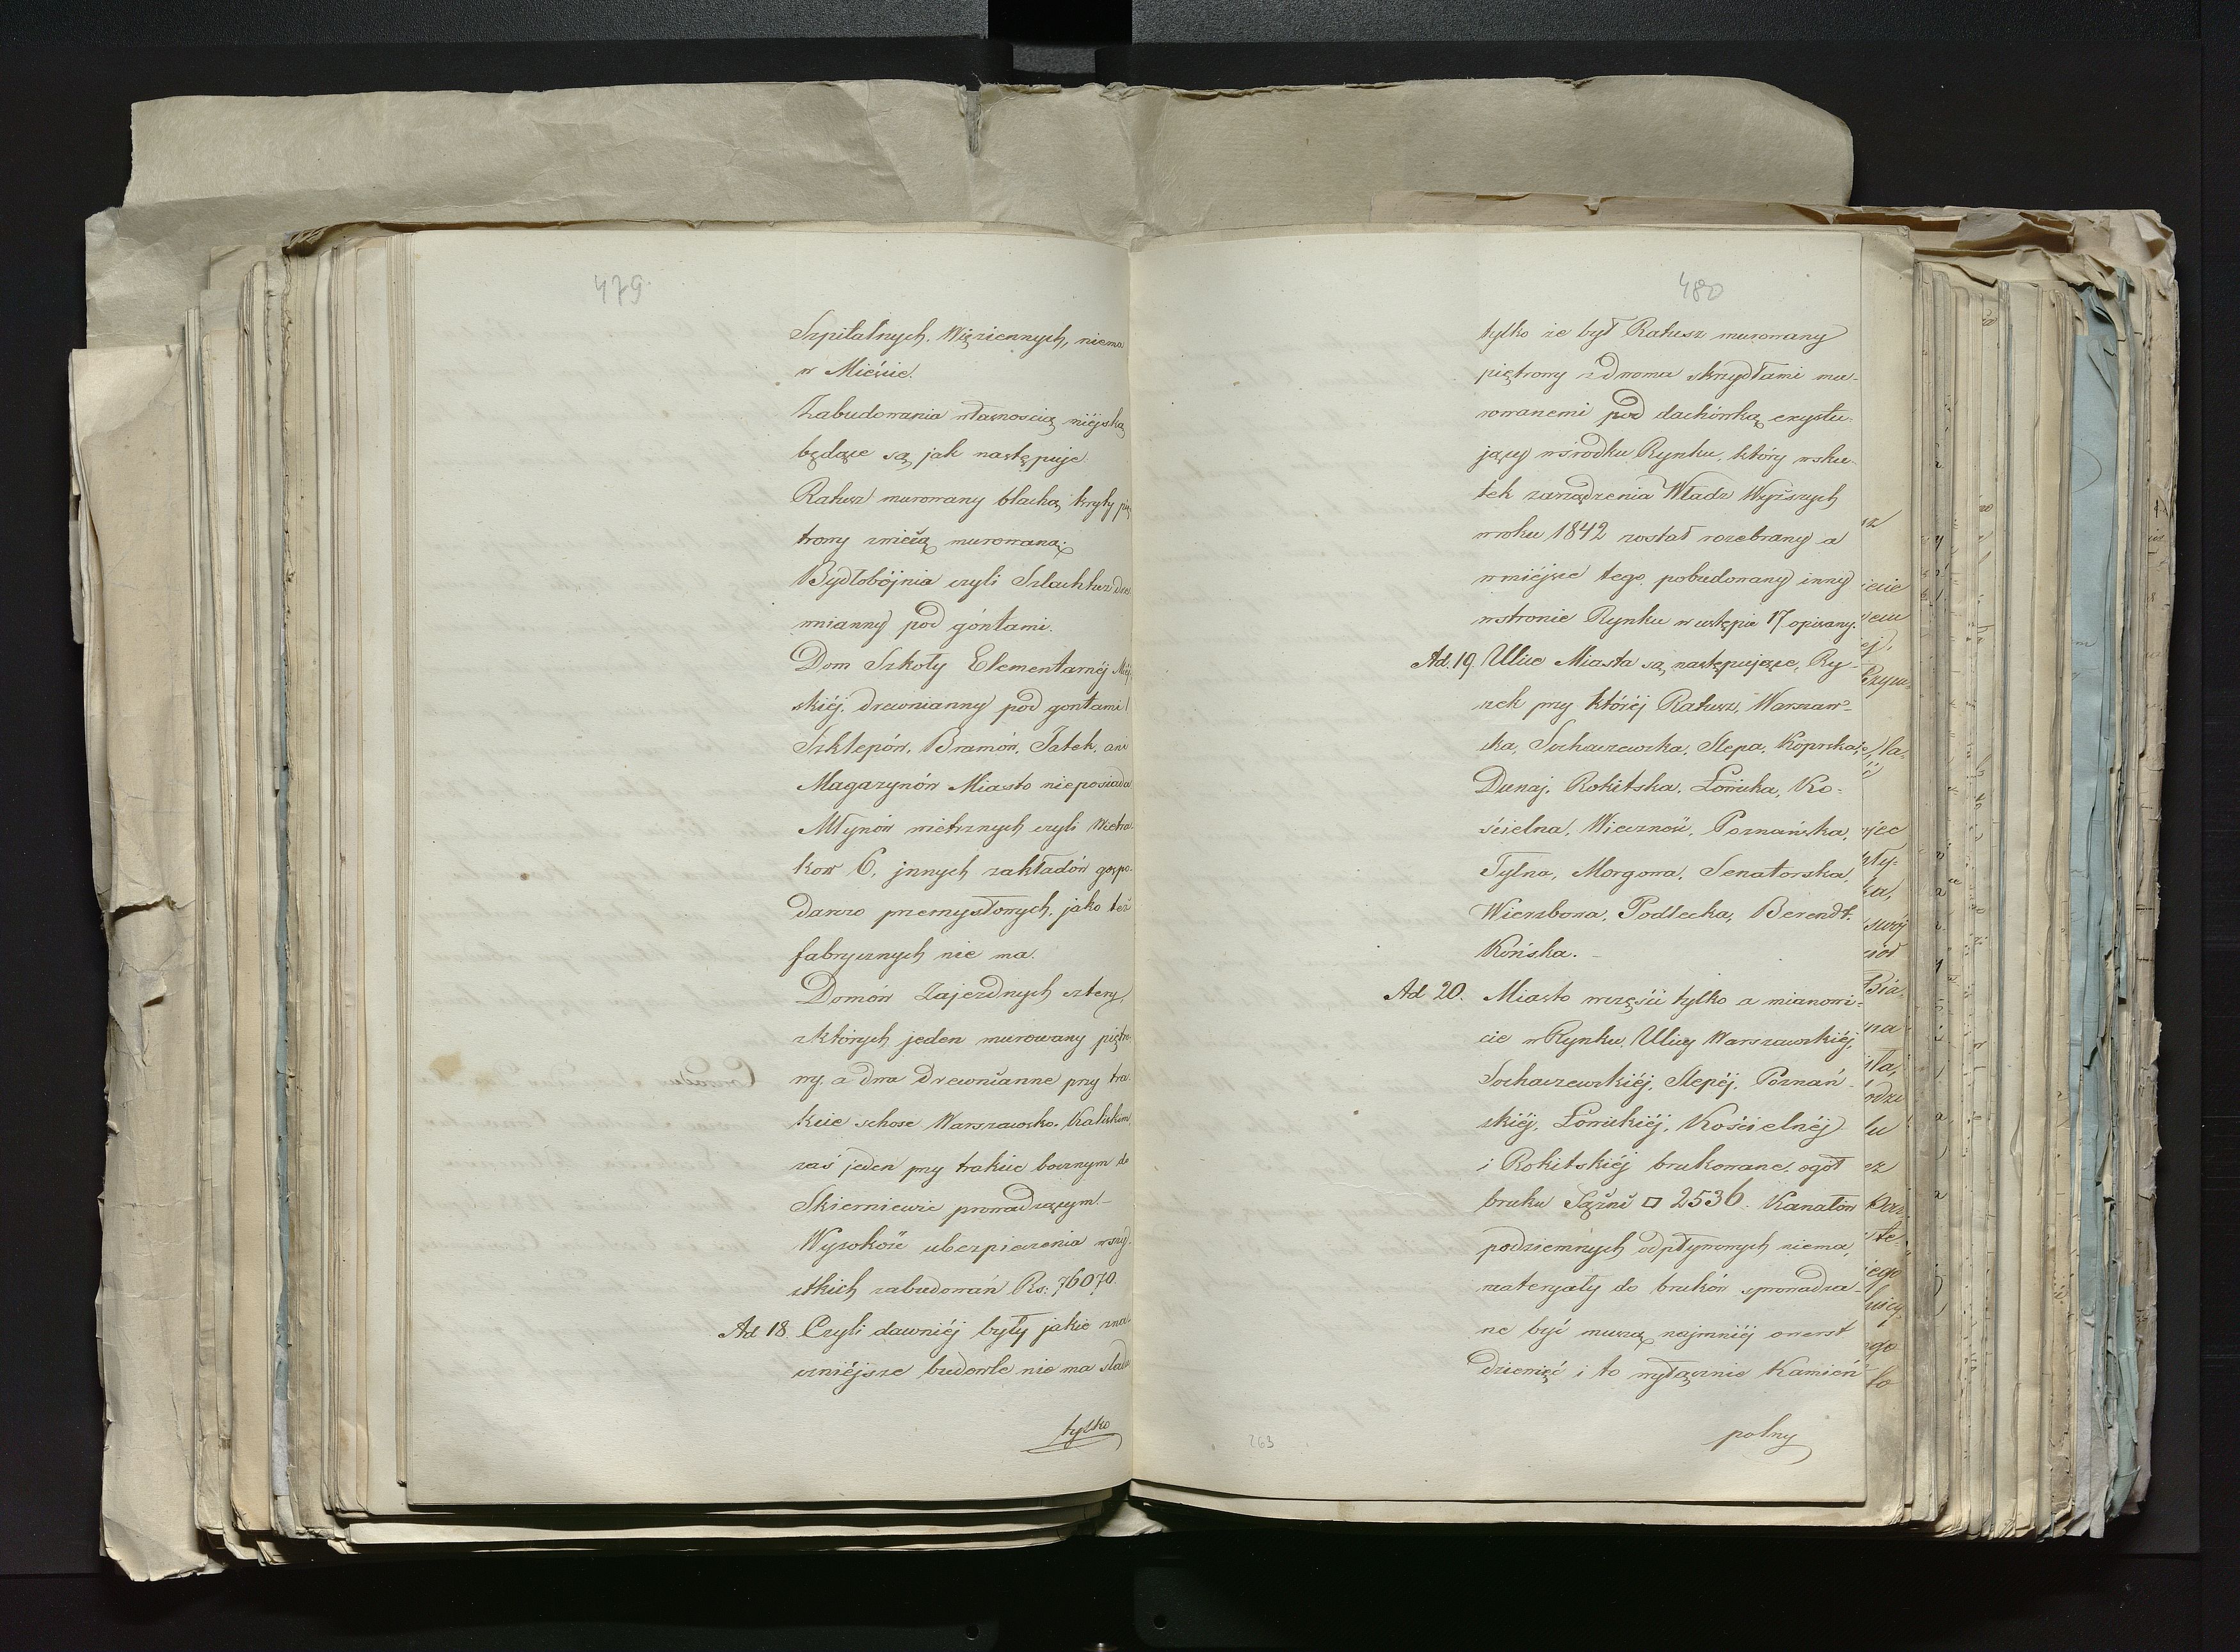 479.
Szpitalnych, Więziennych, niema
w Mieście.
Zabudowania własnoscią miéjską
będące są jak następuje.
Ratusz murowany blachą kryty pię
trowy zwieżą murowaną.
Bydłobójnia czyli Szlachtuz dre
wnianny pod góntami.
Dom Szkoły Elementarnéj Miéj
skiéj drewnianny pod gontami
Szklepów, Bramów, Jatek, ani
Magazynów Miasto nieposiada
Młynów wietrznych czyli Wiatra
kow 6, jnnych zakładów gospo
darczo przemysłowych, jako też
fabrycznych nie ma.
Domów Zajezdnych cztery,
zktórych jeden murowany piętro
wy, a dwa drewnianne przy tra
kcie schose Warszawsko-Kaliskim
zaś jeden przy trakcie bocznym do
Skierniewic prowadzącym.-
Wysokość ubezpieczenia wszy
stkich zabudowań Rs: 76070.
Ad 18. Czyli dawniéj były jakie zna
czniéjsze budowle nie ma sladu
tylko
480
tylko ze był Ratusz murowany
piętrowy zdwoma skrzydłami mu-
rowanemi pod dachówką exystu-
jący wśrodku Rynku, który wsku-
tek zarządzenia Władz Wyższych
wroku 1842 został rozebrany a
wmiéjsce tego pobudowany inny
wstronie Rynku w ustępie 17 opisany.
Ad. 19. Ulice Miasta są następujące, Ry-
nek przy któréj Ratusz, Warszaw-
ska, Sochaczewska, Slepa, Koprska,
Dunaj, Rokitska, Łowicka, Ko-
ścielna, Wieczność, Poznańska,
Tylna, Morgowa, Senatorska,
Wierzbowa, Podlecka, Berendt.
Końska.-
Ad 20. Miasto wczęści tylko a mianowi-
cie w Rynku, Ulicy Warszawskiéj,
Sochaczewskiéj, Slepéj, Poznań-
skiéj, Łowickiéj, Kościelnéj
i Rokitskiéj brukowane, ogół
bruku Sążni □ 2536. Kanałów
podziemnych odpływowych niema,
materyały do bruków sprowadza-
ne być muszą najmniéj owerst
dziewięć i to wyłącznie Kamień
polny
263